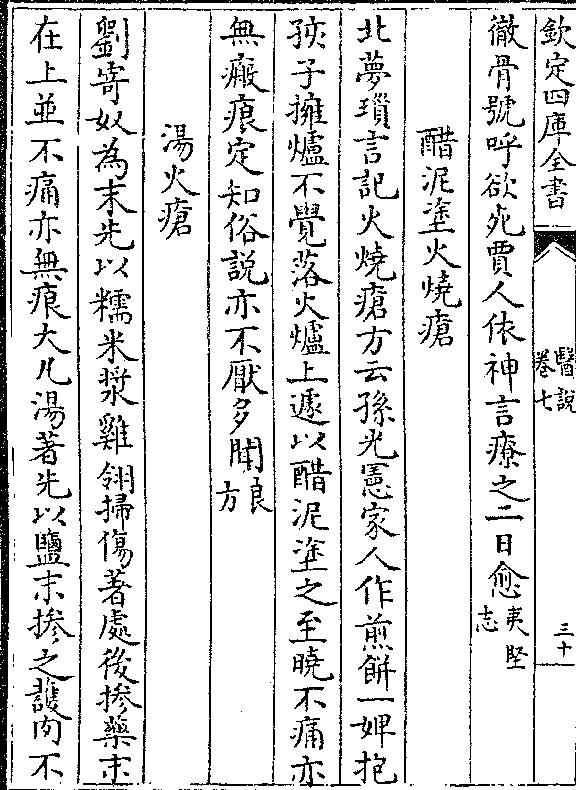 欽定四庫全書
醫説
卷七
三十
徹骨號呼欲死賈人依神言療之二日愈夷堅志
醋泥塗火燒瘡
北夢瑣言記火燒瘡方云孫光憲家人作煎餅一婢抱
孩子擁爐不覺落火爐上遽以醋泥塗之至曉不痛亦
無瘢痕定知俗説亦不厭多聞良方
湯火瘡
劉寄奴為末先以糯米漿雞翎掃傷著處後摻藥末
在上並不痛亦無痕大凡湯著先以鹽末摻之護肉不